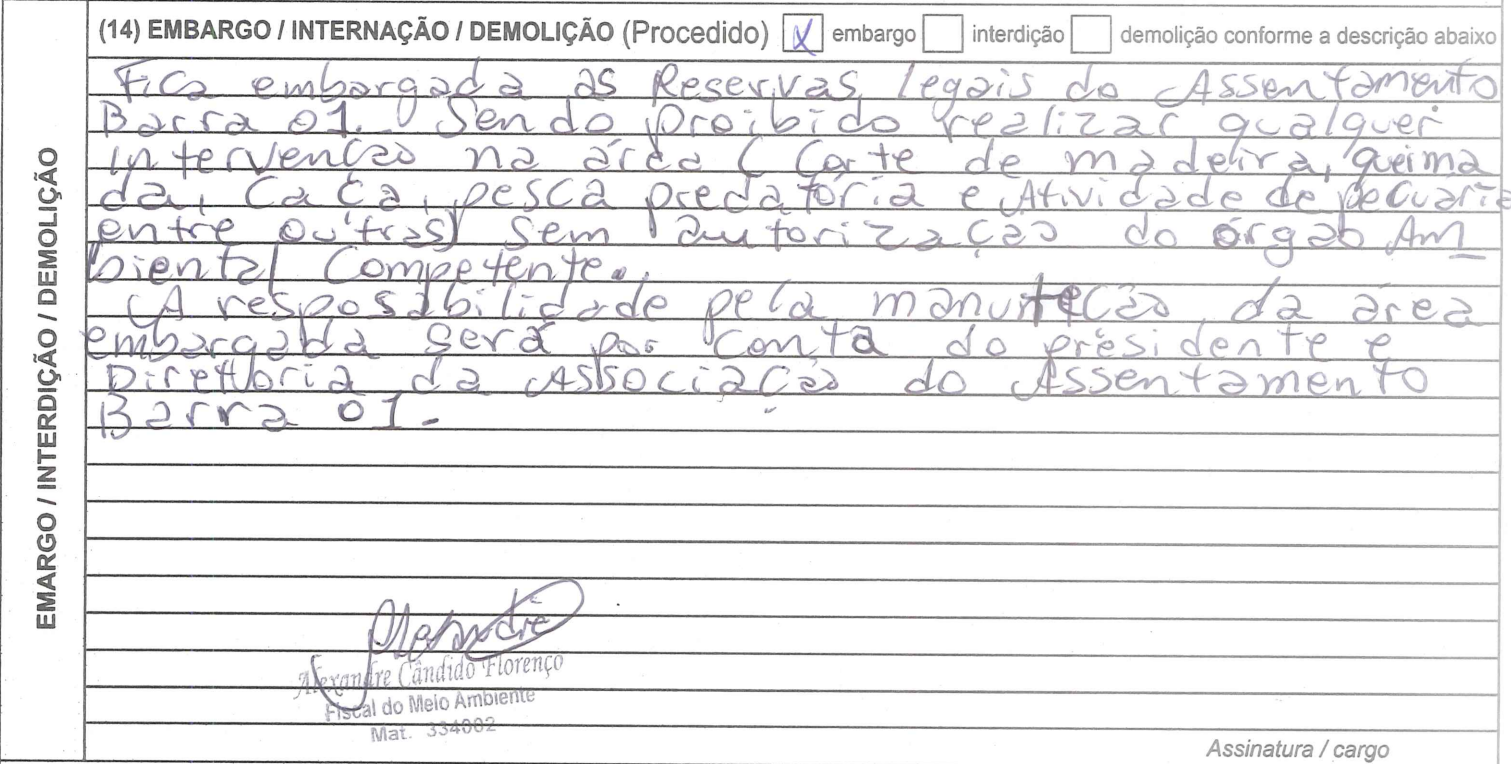 (14) EMBARGO / INTERNAÇÃO / DEMOLIÇÃO (Procedido) X embargo interdição demolição conforme a descrição abaixo
Fica embargada as Reservas legais do Assentamento
Barra 01. Sendo proibido realizar qualquer
intervenção na área ( Corte de madeira, queima
da, Caça, pesca predatória e Atividade de pecuária
entre outras) sem autorização do órgão Am
biental Competente.
A resposabilidade pela manuteção da área
embargada será por conta do présidente e
Diretoria da Associação do Assentamento
Barra 01.
EMARGO / INTERDIÇÃO / DEMOLIÇÃO
Alexandre
Alexandre Cândido Florenço
Fiscal do Meio Ambiente
Mat. 334002
Assinatura / cargo